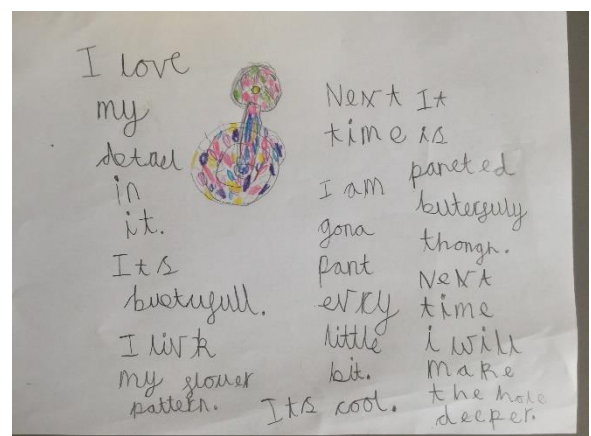 I love
my
detael
in
it.
Its
buetufull.
I livk
my flower
pattern.
Next
time
I am
gona
pant
evry
little
bit.
Its cool.
It
is
paneted
buterfuly
thongh.
Next
time
i will
make
the hole
deeper.